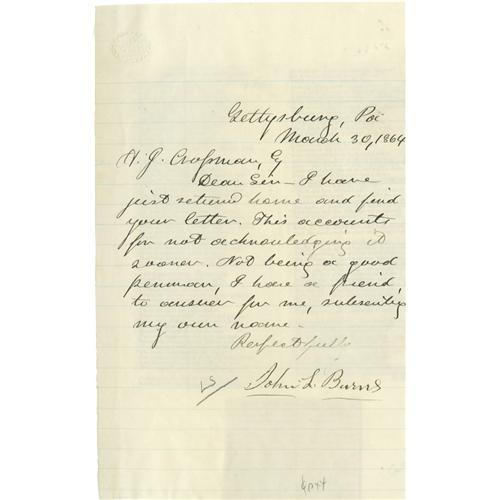 Gettysburg, Pa
March 30, 1864
H. J. Crossman, Esq
Dear Sir— I have
just returnd home and find
your letter. This accounts
for not acknowledging it
sooner. Not being a good
penman, I have a friend,
to answer for me, subscribing
my own name.
Respectfully
LS/ John L. Burns